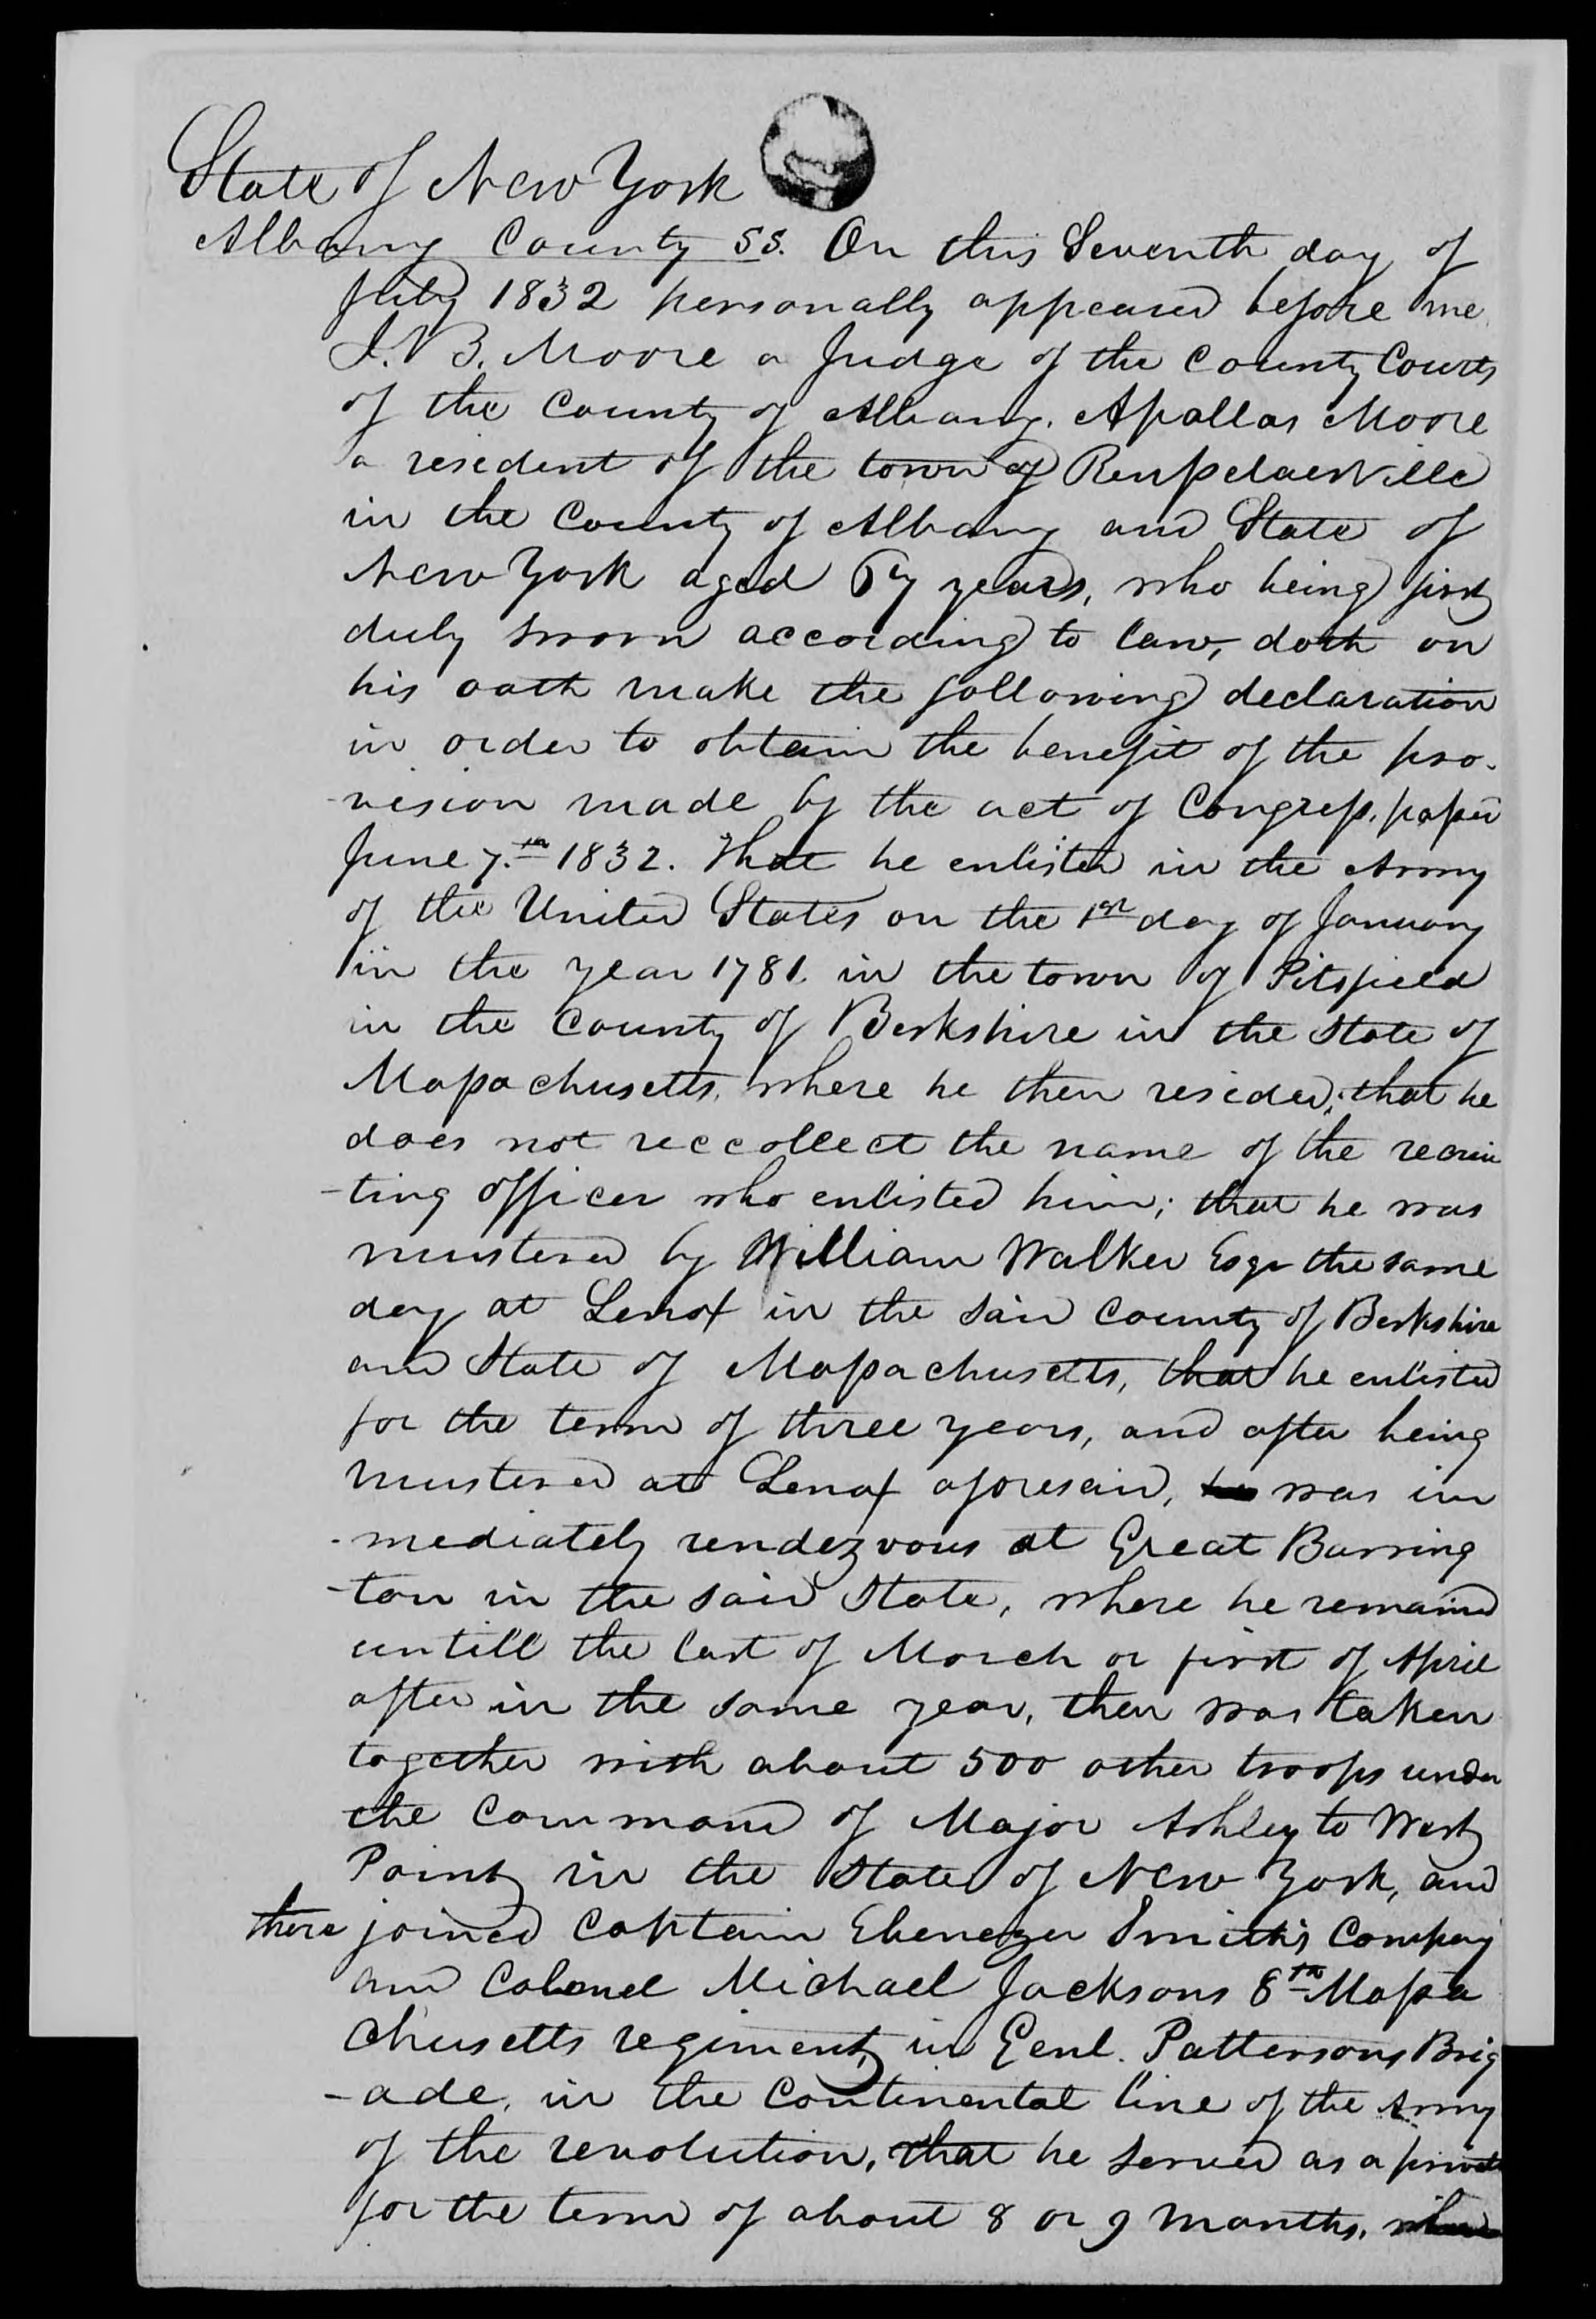 State of New York
Albany County SS. On this Seventh day of
July 1832 personally appeared before me
J. B. Moore a Judge of the County Courts
of the County of Albany. Apollos Moore
a resident of the town of Rensselaerville
in the County of Albany and State of
New York aged 67 years, who being first
duly sworn according to law, doth on
his oath make the following declaration
in order to obtain the benefit of the pro-
-vision made by the act of Congress, passed
June 7.th 1832. That he enlisted in the Army
of the United States on the 1st day of January
in the year 1781. in the town of Pitsfield
in the County of Berkshire in the State of
Massachusetts, where he then resided; that he
does not reccollect the name of the recrui
-ting officer who enlisted him; that he was
mustered by William Walker Esqr the same
day at Lenox in the said County of Berkshire
and State of Massachusetts, that he enlisted
for the term of three years, and after being
mustered at Lenox aforesaid, was im
-mediately rendezvous at Great Barring
-ton in the said State, where he remained
untill the last of March or first of April
after in the same year, then was taken
together with about 500 other troops under
the command of Major Ashley to West
Point in the State of New York, and
there joined Captain Ebenezer Smith's Company
and Colonel Michael Jacksons 8th Massa
chusetts regiment, in Genl. Pattersons Brig
-ade, in the Continental line of the Army
of the revolution, that he served as a private
for the term of about 8 or 9 months,